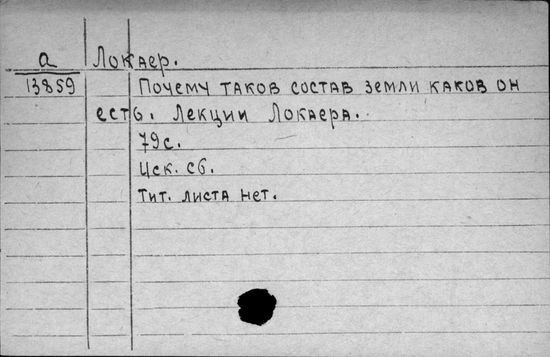 а Локаер.
13859 Почему таков состав земли каков он
есть. Лекции Локаера.
79с.
Цск. сб.
Тит. листа нет.